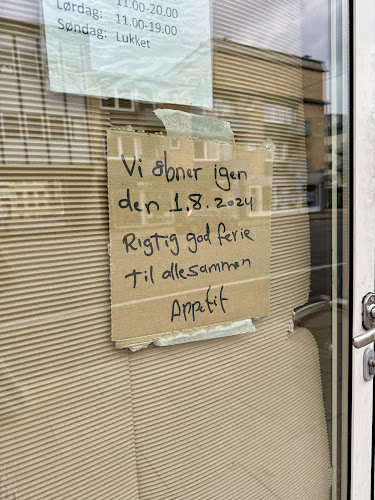 11.00-20.00
Lørdag: 11.00-19.00
Søndag: Lukket
Vi åbner igen
den 1.8.2024
Rigtig god ferie
til allesammen
Appetit